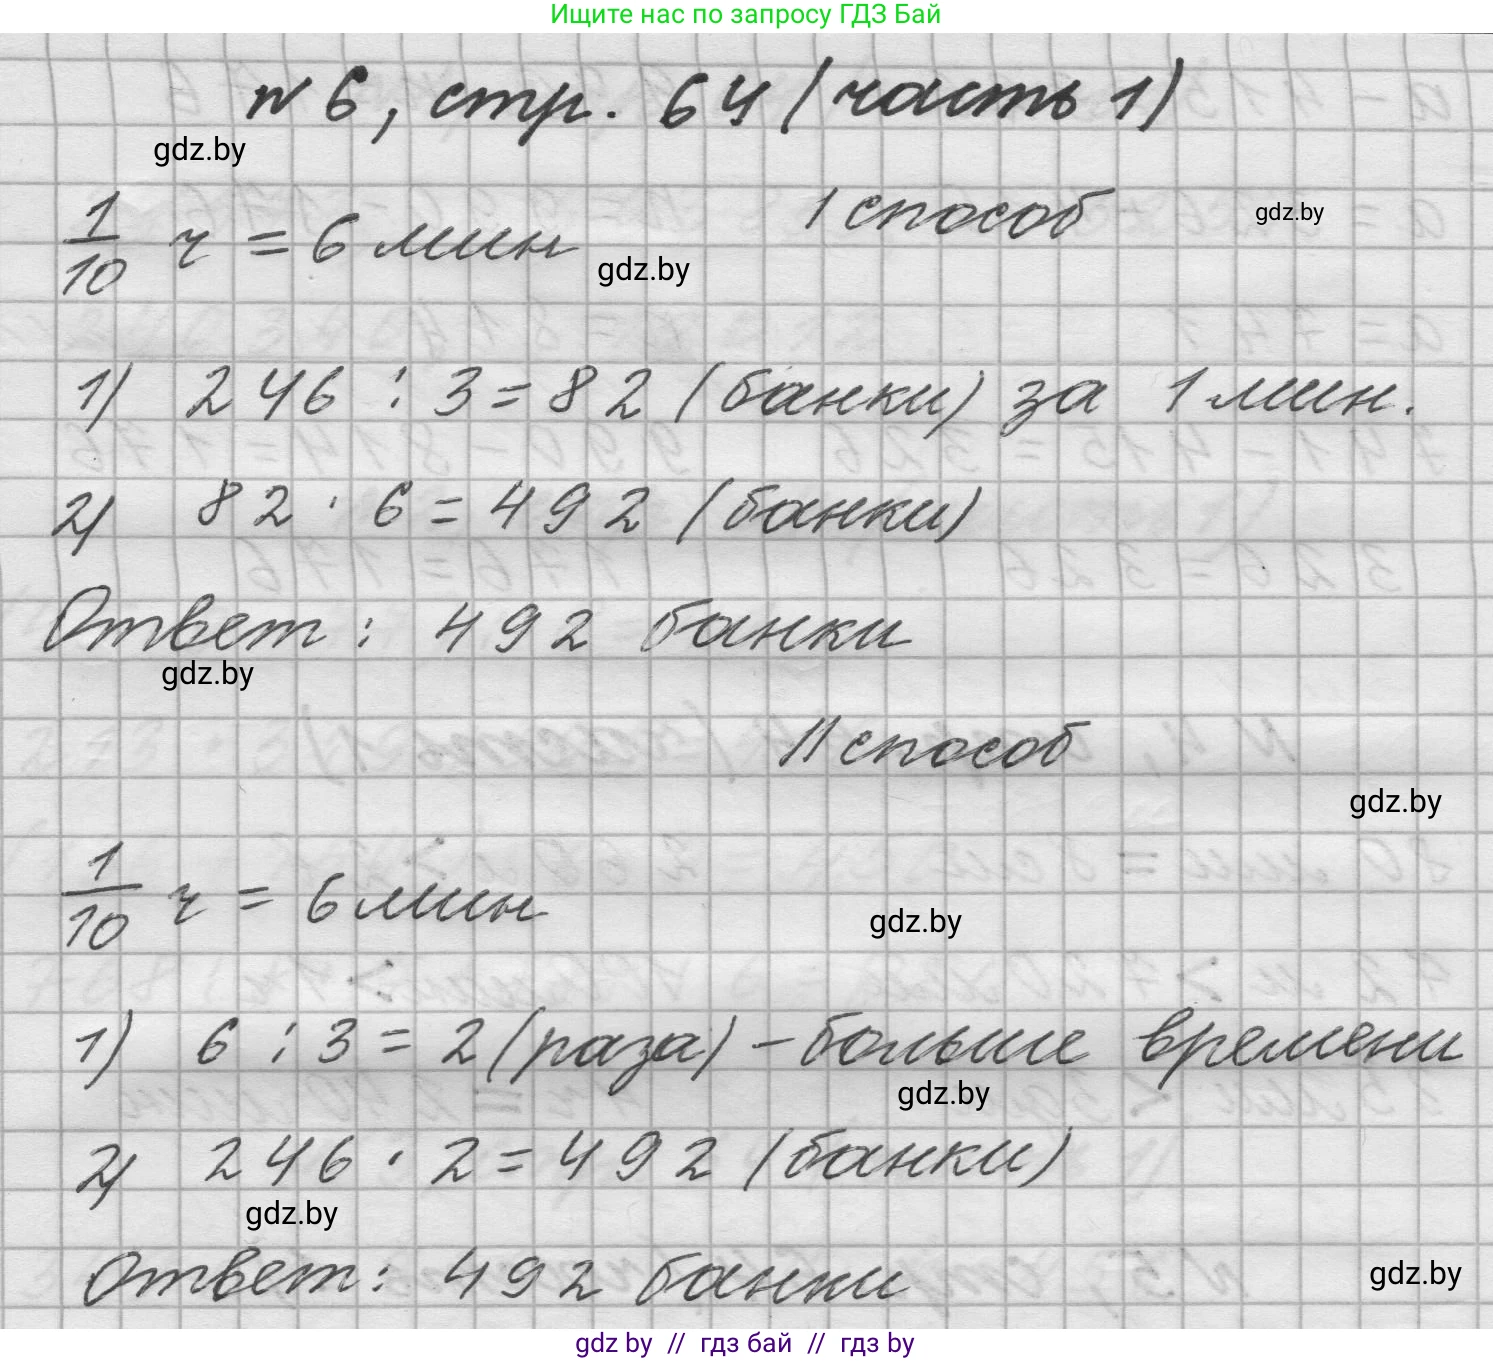 Ищите нас по запросу ГДЗ Бай
№ 6, стр. 64 (часть 1)
gdz.by
I способ
gdz.by
1/10 ч = 6 мин
gdz.by
1) 246 : 3 = 82 (банки) за 1 мин.
2) 82 · 6 = 492 (банки)
Ответ: 492 банки
gdz.by
II способ
gdz.by
1/10 ч = 6 мин
gdz.by
1) 6 : 3 = 2 (раза) - больше времени
gdz.by
2) 246 · 2 = 492 (банки)
gdz.by
Ответ: 492 банки
gdz.by
gdz by // гдз бай // гдз by